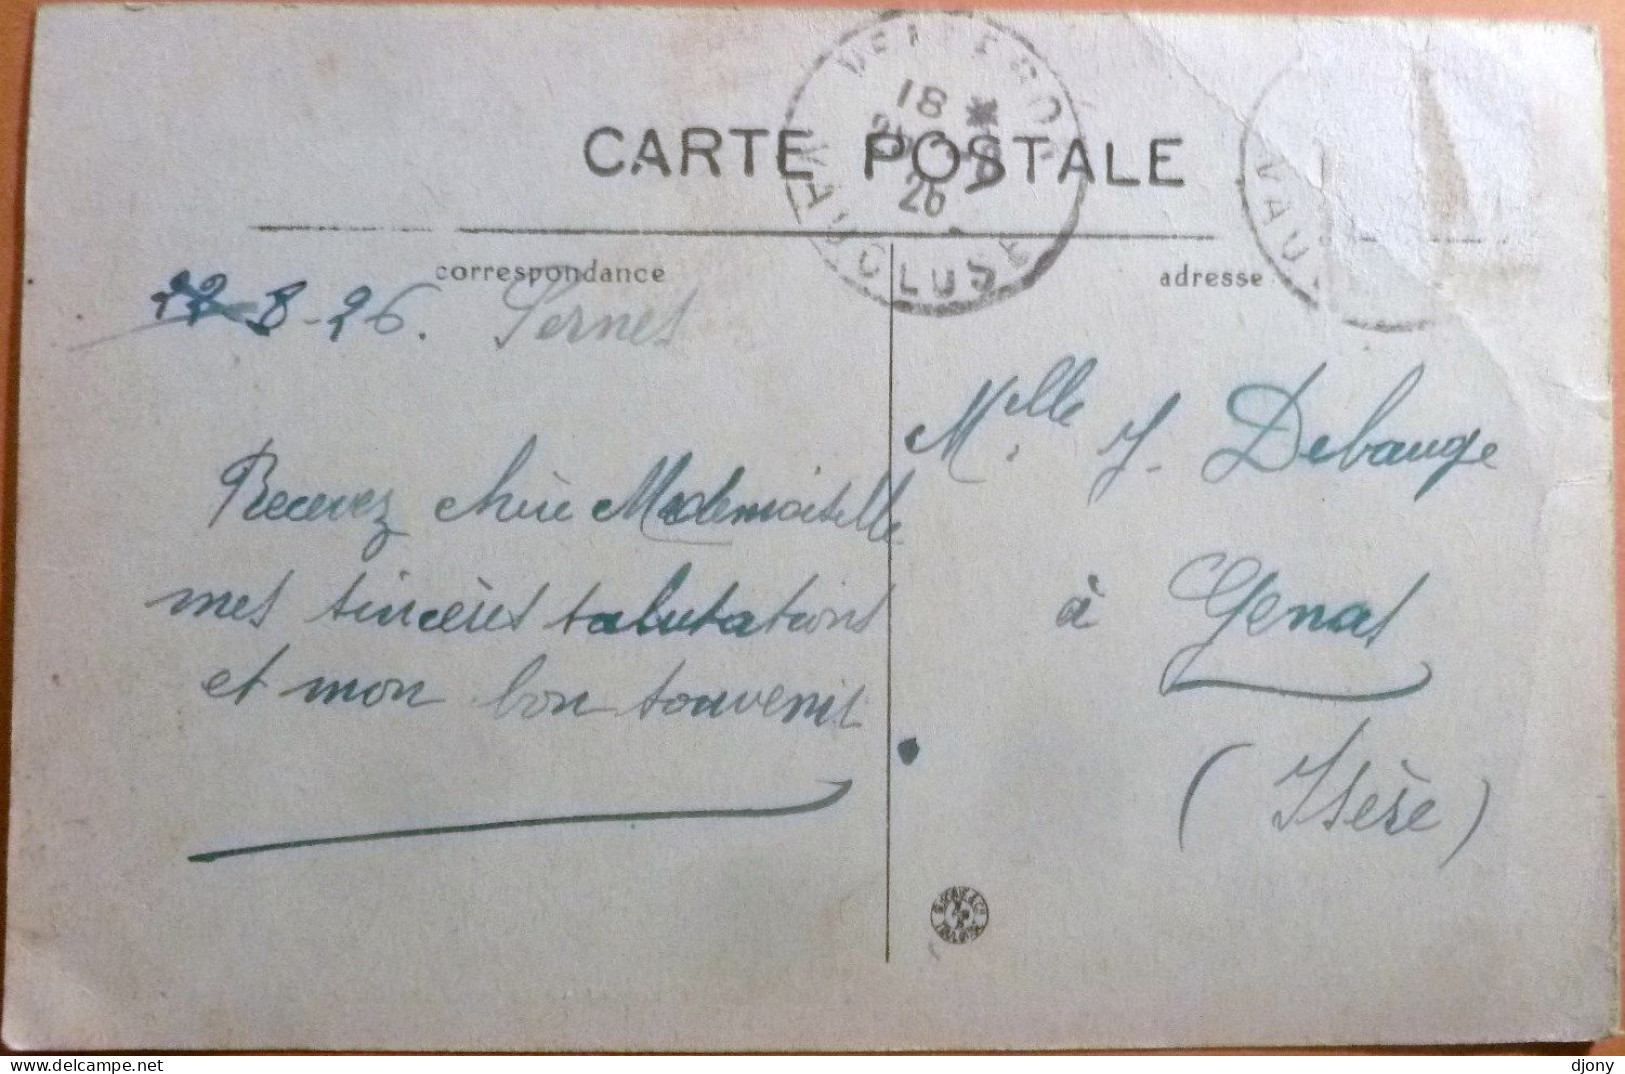 CARTE POSTALE
18 *
26
VAUCLUSE
VAU
correspondance
adresse
22-8-26. Sernes
Mlle J. Debauge
Recevez chère Mademoiselle
mes sincères salutations
et mon bon souvenir
à Genas
(Isère)
delcampe.net
djony